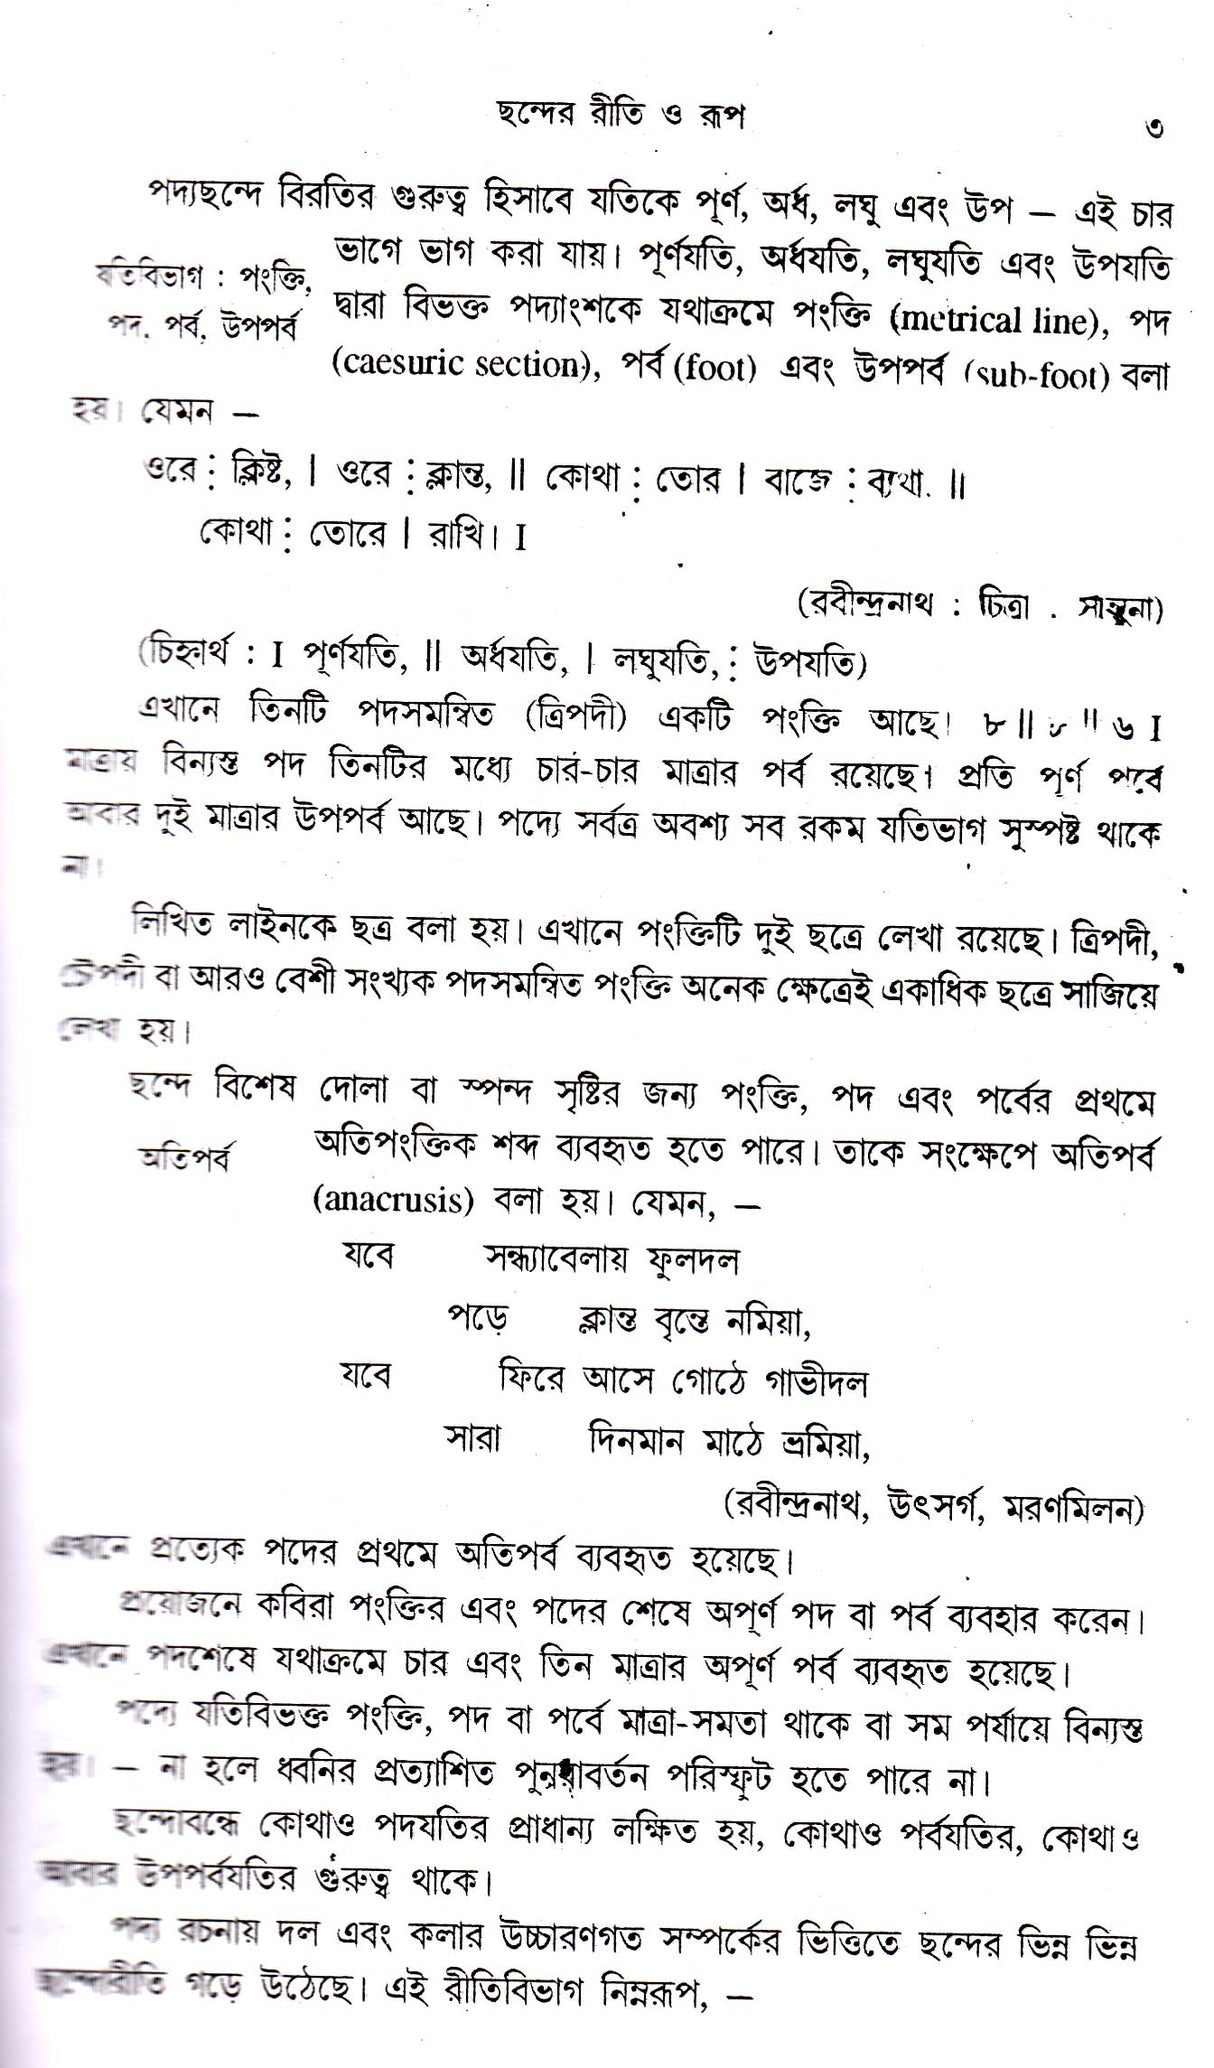 ছন্দের রীতি ও রূপ
৩
পদ্যছন্দে বিরতির গুরুত্ব হিসাবে যতিকে পূর্ণ, অর্ধ, লঘু এবং উপ — এই চার
ভাগে ভাগ করা যায়। পূর্ণযতি, অর্ধযতি, লঘুযতি এবং উপযতি
যতিবিভাগ : পংক্তি,
দ্বারা বিভক্ত পদ্যাংশকে যথাক্রমে পংক্তি (metrical line), পদ
পদ, পর্ব, উপপর্ব
(caesuric section), পর্ব (foot) এবং উপপর্ব (sub-foot) বলা
হয়। যেমন —
ওরে ⋮ ক্লিষ্ট, | ওরে ⋮ ক্লান্ত, || কোথা ⋮ তোর | বাজে ⋮ ব্যথা. ||
কোথা ⋮ তোরে | রাখি। I
(রবীন্দ্রনাথ : চিত্রা . সান্ত্বনা)
(চিহ্নার্থ : I পূর্ণযতি, || অর্ধযতি, | লঘুযতি, ⋮ উপযতি)
এখানে তিনটি পদসমন্বিত (ত্রিপদী) একটি পংক্তি আছে। ৮ || ৮ || ৬ I
মাত্রায় বিন্যস্ত পদ তিনটির মধ্যে চার-চার মাত্রার পর্ব রয়েছে। প্রতি পূর্ণ পর্বে
আবার দুই মাত্রার উপপর্ব আছে। পদ্যে সর্বত্র অবশ্য সব রকম যতিভাগ সুস্পষ্ট থাকে
না।
লিখিত লাইনকে ছত্র বলা হয়। এখানে পংক্তিটি দুই ছত্রে লেখা রয়েছে। ত্রিপদী,
চৌপদী বা আরও বেশী সংখ্যক পদসমন্বিত পংক্তি অনেক ক্ষেত্রেই একাধিক ছত্রে সাজিয়ে
লেখা হয়।
ছন্দে বিশেষ দোলা বা স্পন্দ সৃষ্টির জন্য পংক্তি, পদ এবং পর্বের প্রথমে
অতিপংক্তিক শব্দ ব্যবহৃত হতে পারে। তাকে সংক্ষেপে অতিপর্ব
অতিপর্ব
(anacrusis) বলা হয়। যেমন, —
যবে সন্ধ্যাবেলায় ফুলদল
পড়ে ক্লান্ত বৃন্তে নমিয়া,
যবে ফিরে আসে গোঠে গাভীদল
সারা দিনমান মাঠে ভ্রমিয়া,
(রবীন্দ্রনাথ, উৎসর্গ, মরণমিলন)
এখানে প্রত্যেক পদের প্রথমে অতিপর্ব ব্যবহৃত হয়েছে।
প্রয়োজনে কবিরা পংক্তির এবং পদের শেষে অপূর্ণ পদ বা পর্ব ব্যবহার করেন।
এখানে পদশেষে যথাক্রমে চার এবং তিন মাত্রার অপূর্ণ পর্ব ব্যবহৃত হয়েছে।
পদ্যে যতিবিভক্ত পংক্তি, পদ বা পর্বে মাত্রা-সমতা থাকে বা সম পর্যায়ে বিন্যস্ত
হয়। — না হলে ধ্বনির প্রত্যাশিত পুনরাবর্তন পরিস্ফুট হতে পারে না।
ছন্দোবন্ধে কোথাও পদযতির প্রাধান্য লক্ষিত হয়, কোথাও পর্বযতির, কোথাও
আবার উপপর্বযতির গুরুত্ব থাকে।
পদ্য রচনায় দল এবং কলার উচ্চারণগত সম্পর্কের ভিত্তিতে ছন্দের ভিন্ন ভিন্ন
ছন্দোরীতি গড়ে উঠেছে। এই রীতিবিভাগ নিম্নরূপ, —